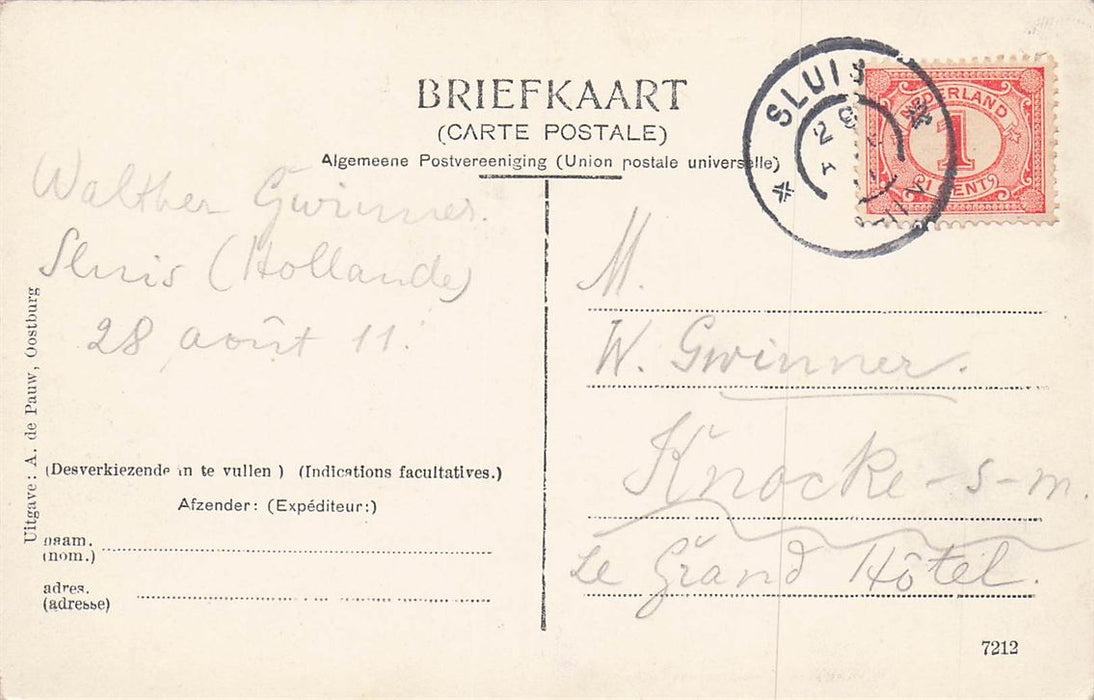 BRIEFKAART
(CARTE POSTALE)
Algemeene Postvereeniging (Union postale universelle)
SLUIS
NEDERLAND
1
1 CENT
Walther Gwinner.
Sluis (Hollande)
28 août 11.
Uitgave: A. de Pauw, Oostburg
(Desverkiezende in te vullen) (Indications facultatives.)
Afzender: (Expéditeur:)
naam.
(nom.)
adres.
(adresse)
M.
W. Gwinner.
Knocke-s-m.
Le Grand Hôtel.
7212